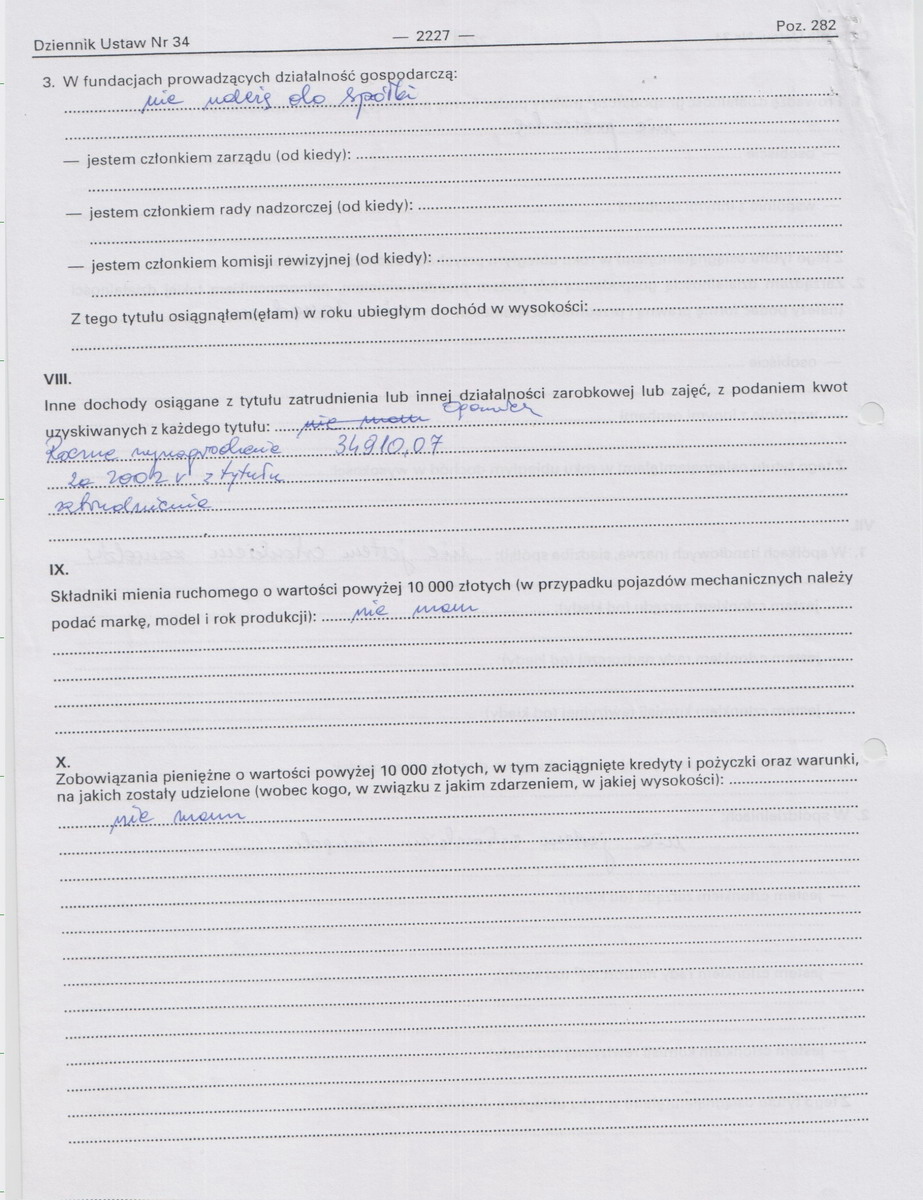 Dziennik Ustaw Nr 34 — 2227 — Poz. 282
3. W fundacjach prowadzących działalność gospodarczą:
nie należę do spółki
— jestem członkiem zarządu (od kiedy):
— jestem członkiem rady nadzorczej (od kiedy):
— jestem członkiem komisji rewizyjnej (od kiedy):
Z tego tytułu osiągnąłem(ęłam) w roku ubiegłym dochód w wysokości:
VIII.
Inne dochody osiągane z tytułu zatrudnienia lub innej działalności zarobkowej lub zajęć, z podaniem kwot
uzyskiwanych z każdego tytułu: nie mam
Roczne wynagrodzenie 34910,07
za 2002 r z tytułu
zatrudnienia
IX.
Składniki mienia ruchomego o wartości powyżej 10 000 złotych (w przypadku pojazdów mechanicznych należy
podać markę, model i rok produkcji): nie mam
X.
Zobowiązania pieniężne o wartości powyżej 10 000 złotych, w tym zaciągnięte kredyty i pożyczki oraz warunki,
na jakich zostały udzielone (wobec kogo, w związku z jakim zdarzeniem, w jakiej wysokości):
nie mam